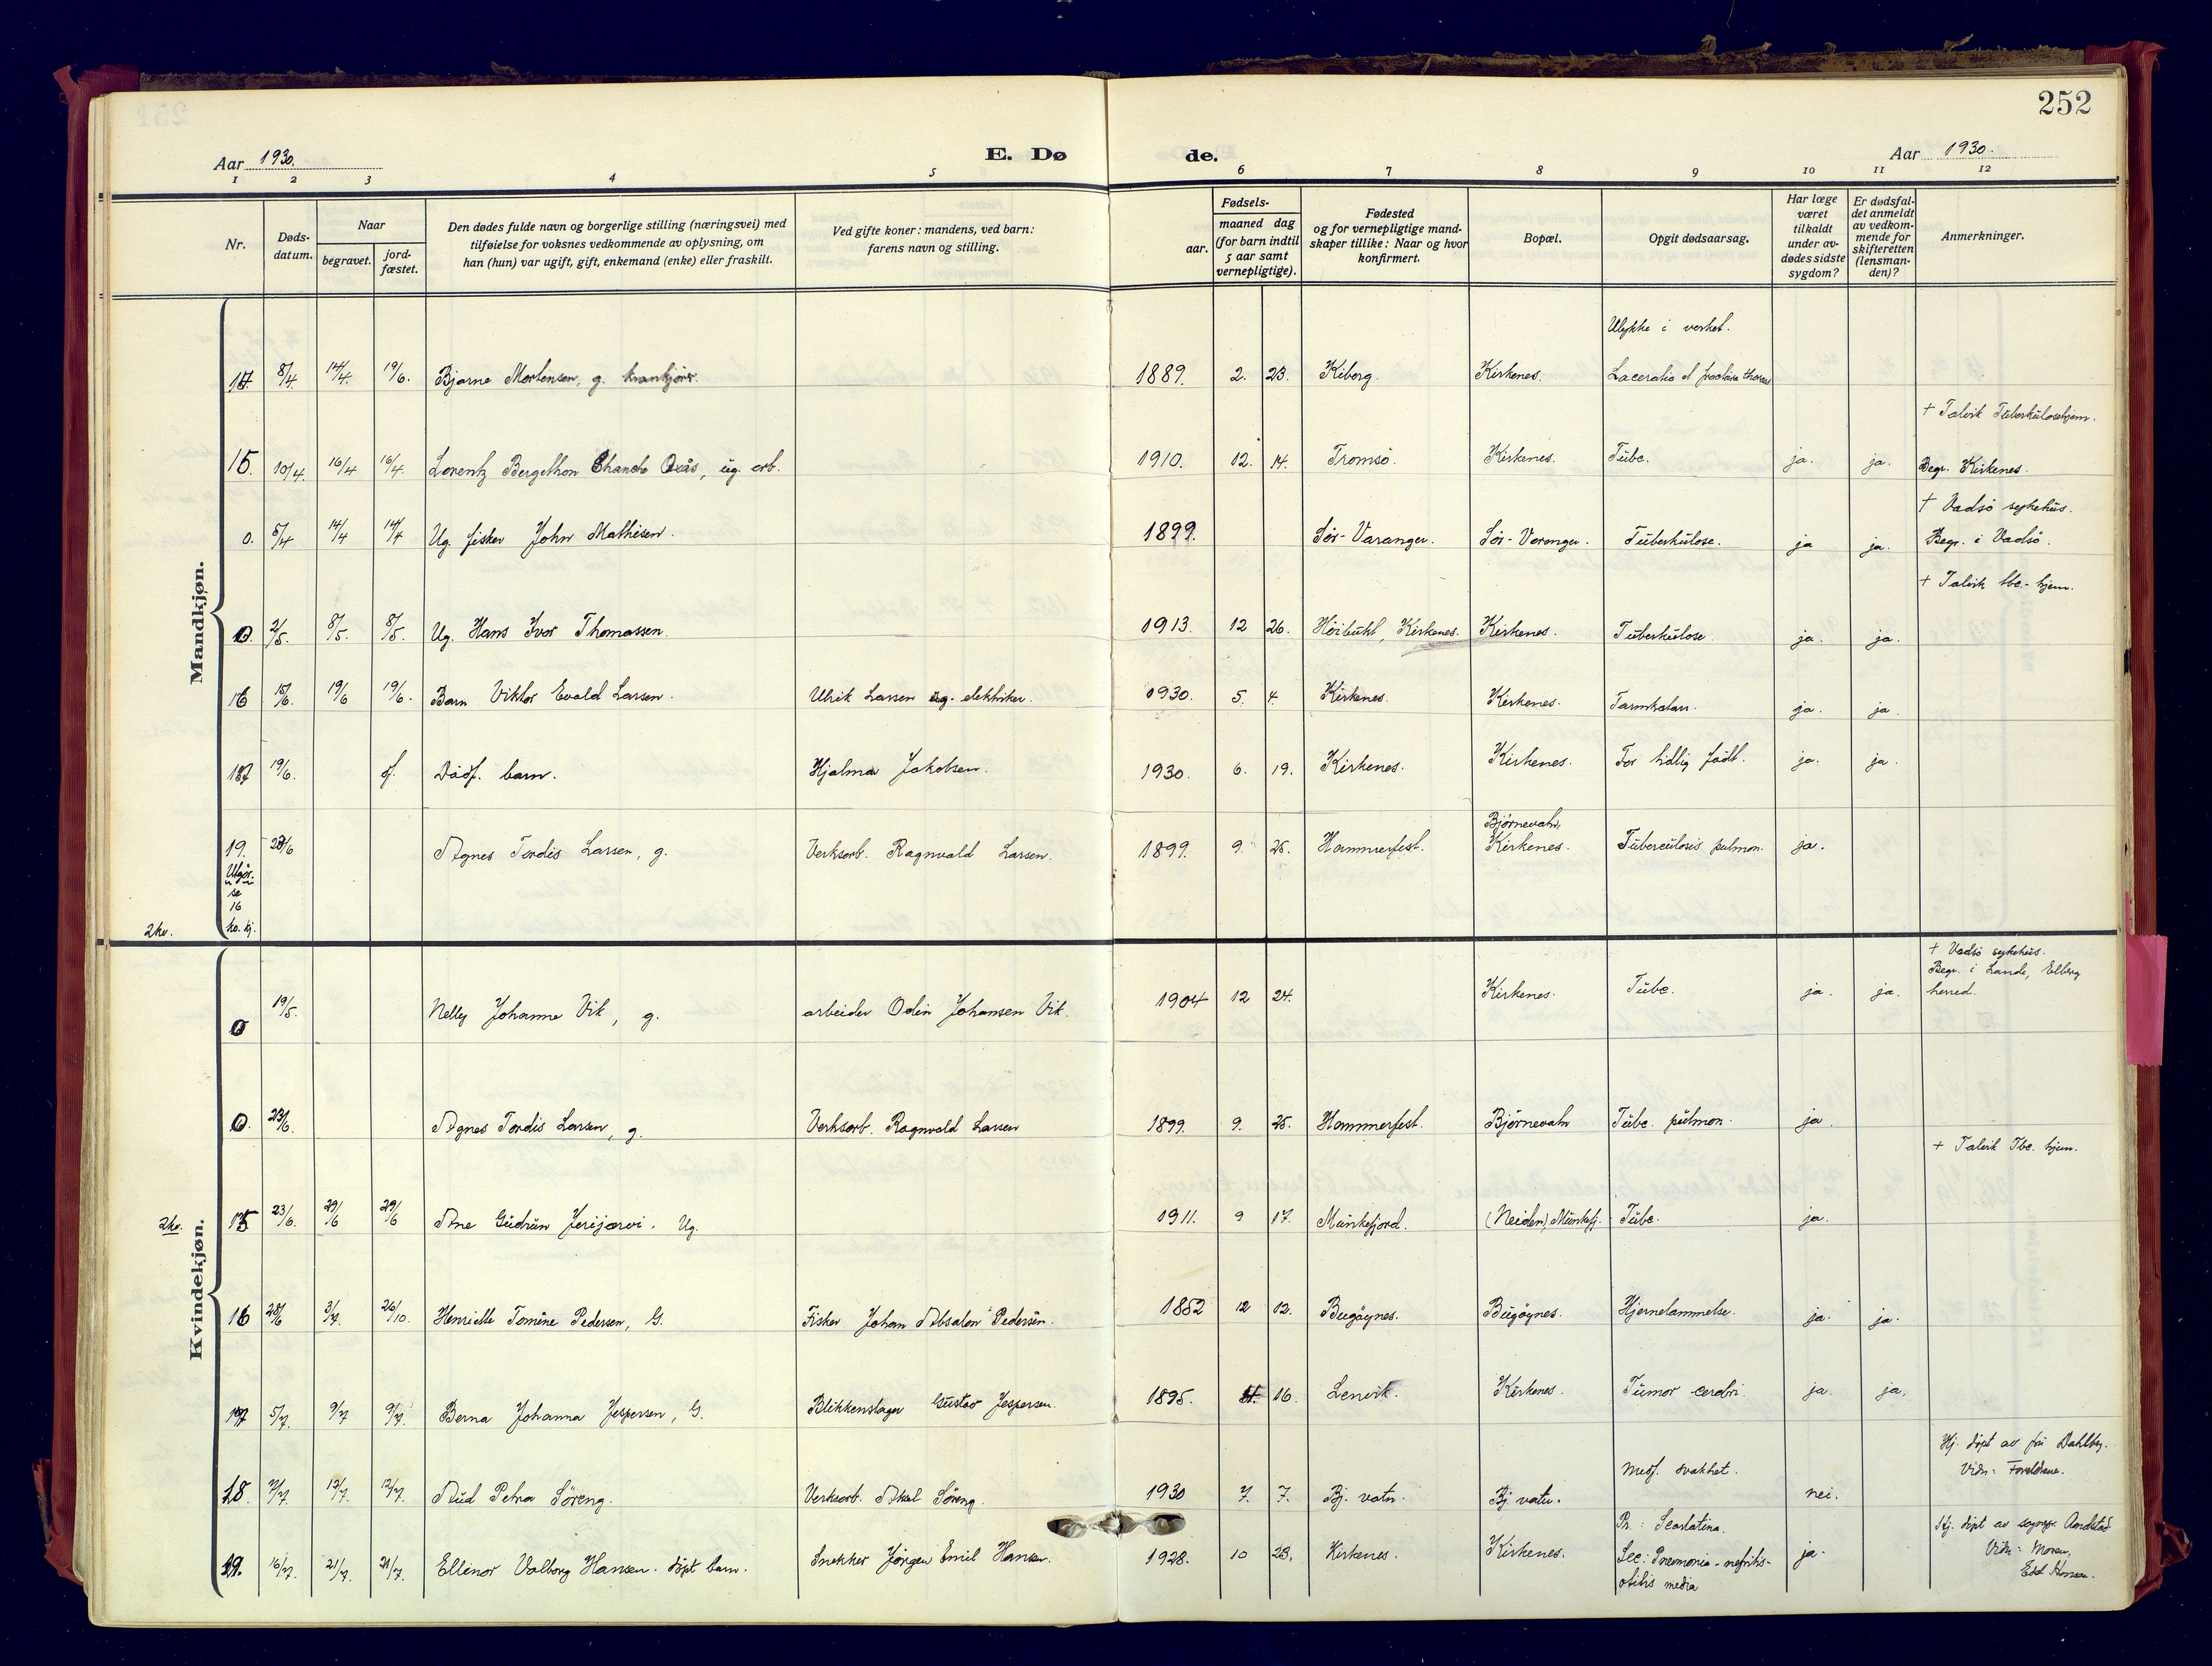 252
Aar 1930.
E. Dø
de.
Aar 1930.
1 2 3 4 5 6 7 8 9 10 11 12
Nr.
Døds-
datum.
Naar
begravet.
jord-
fæstet.
Den dødes fulde navn og borgerlige stilling (næringsvei) med
tilføielse for voksnes vedkommende av oplysning, om
han (hun) var ugift, gift, enkemand (enke) eller fraskilt.
Ved gifte koner: mandens, ved barn:
farens navn og stilling.
Fødsels-
aar.
maaned dag
(for barn indtil
5 aar samt
vernepligtige).
Fødested
og for vernepligtige mand-
skaper tillike: Naar og hvor
konfirmert.
Bopæl.
Opgit dødsaarsag.
Har læge
været
tilkaldt
under av-
dødes sidste
sygdom?
Er dødsfal-
det anmeldt
av vedkom-
mende for
skifteretten
(lensman-
den)?
Anmerkninger.
Mandkjøn.
Ulykke i verket.
8/4 14/4. 19/6. Bjarne Mortensen, g. krankjörer. 1889. 2. 23. Kiberg. Kirkenes. Laceratio et fractura thorax
+ Talvik Tuberkulosehjem.
15. 10/4. 16/4 16/4. Lorentz Bergethon Oxås, ug. arb. 1910. 12. 14. Tromsö. Kirkenes. Tube. ja. ja. Begr. Kirkenes.
+ Vadsö sykehus.
0. 5/4 14/4 14/4 Ug. fisker John Mathisen. 1899. Sör-Varanger. Sör-Varanger. Tuberkulose. ja ja. Begr. i Vadsö.
+ Talvik tbc-hjem.
0. 2/5. 8/5. 8/5. Ug. Hans Ivar Thomassen. 1913. 12 26. Höibukt, Kirkenes. Kirkenes. Tuberkulose. ja. ja.
16 15/6. 19/6 19/6. Barn Viktor Evald Larsen. Ulrik Larsen ug. elektriker. 1930. 5. 4. Kirkenes. Kirkenes. Tarmkatarr. ja. ja.
17 19/6. df. Dödf. barn. Hjalmar Jakobsen. 1930. 6. 19. Kirkenes. Kirkenes. For tidlig födt. ja. ja.
Bjørnevatn,
19. 23/6 Agnes Tordis Larsen, g. Verksarb. Ragnvald Larsen. 1899. 9. 25. Hammerfest. Kirkenes. Tuberculosis pulmon. ja.
Utgår.
se
16
kv. kj.
2kv.
Kvindekjøn.
+ Vadsö sykehus.
Begr. i Lande,
0 19/5. Nelly Johanne Vik, g. arbeider Odin Johansen Vik. 1904 12 24. Kirkenes. Tube. ja. ja. herred.
0. 23/6. Agnes Tordis Larsen, g. Verksarb. Ragnvald Larsen 1899. 9. 25. Hammerfest. Björnevatn Tube. pulmon. ja.
+ Talvik Tbc. hjem.
2kv. 15 23/6. 29/6 29/6 Ane Gudrun Jerijærvi. Ug. 1911. 9 17. Munkefjord. (Neiden), Munkefj. Tube. ja.
16 28/6 3/7. 26/10. Henriette Tomine Pedersen, G. Fisker Johan Absalon Pedersen. 1852 12 12. Bugöynes. Bugöynes. Hjernelammelse. ja. ja.
17 5/7. 9/7 9/7. Berna Johanna Jespersen, G. Blikkenslager Gustav Jespersen. 1895. 16. Lenvik. Kirkenes. Tumor cerebri. ja. ja.
Hj. döpt av fru Dahlberg.
Medf. svakhet. Vidn: Foreldrene.
18. 7/7. 12/7. 12/7. Aud Petra Söreng. Verksarb. Aksel Söreng. 1930 7. 7. Bj. vatn. Bj. vatn. nei.
Pr.: Scarlatina. Hj. döpt av sognepr.
19. 16/7. 21/7. 21/7. Ellinor Valborg Hansen. döpt barn. Snekker Jörgen Emil Hansen. 1928. 10 23. Kirkenes. Kirkenes. Sec: Pnemonia - nefritis- ja. Vidn: Moren,
otitis media